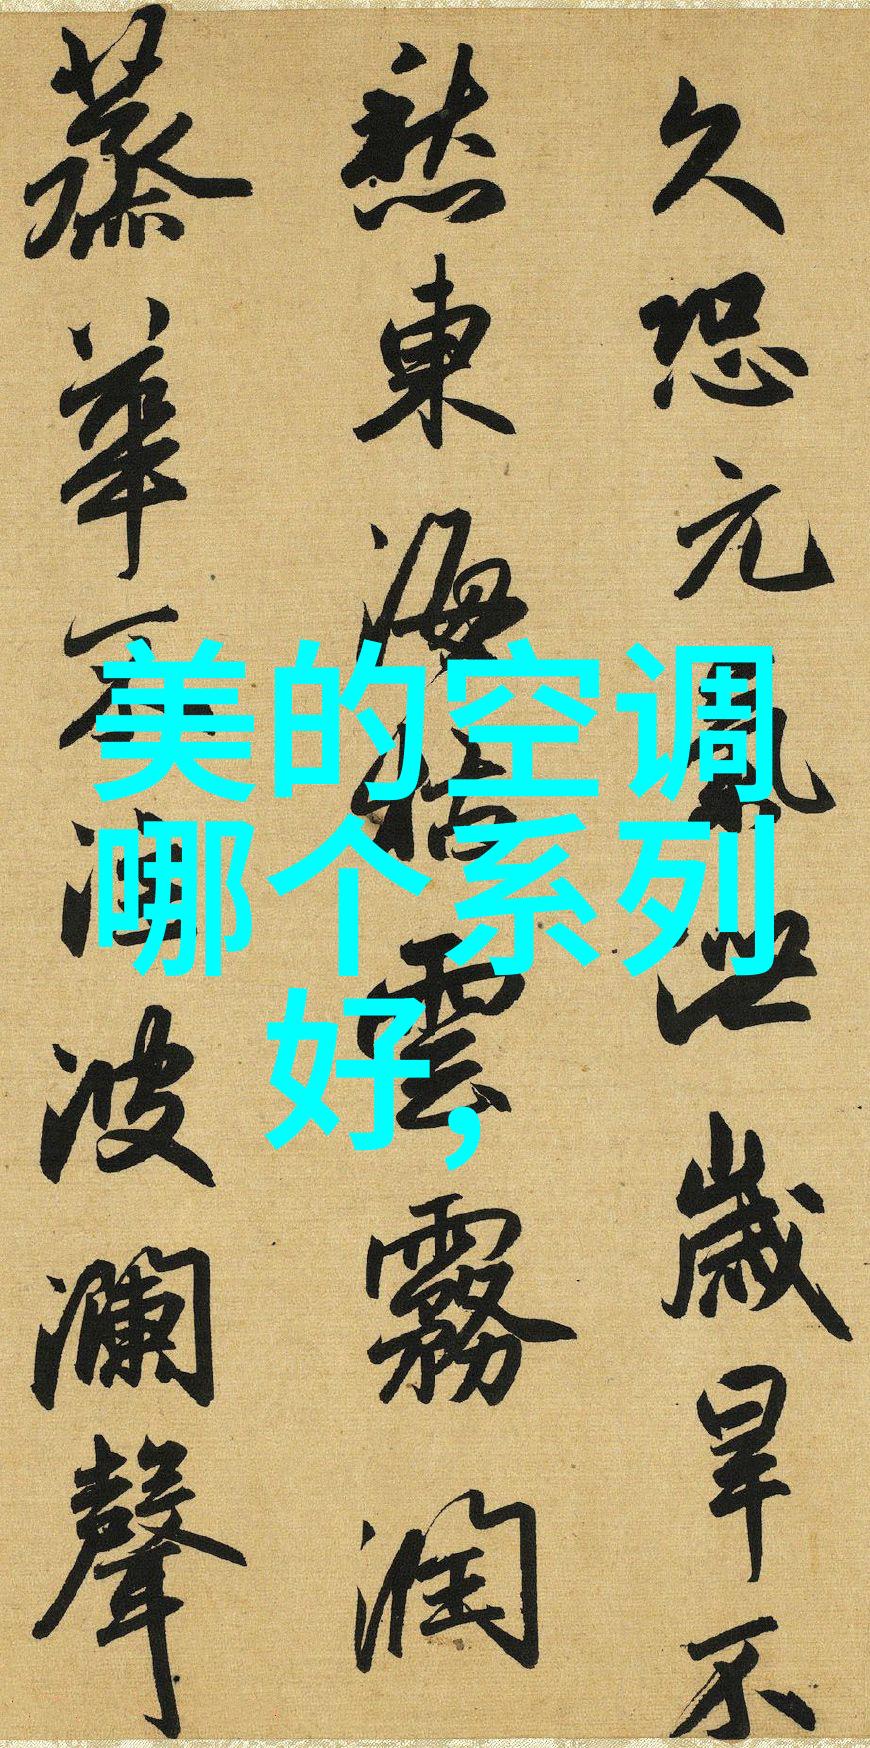 久恐元氣洪歲旱不
愁東海枯雲霧潤
蒸華不注波瀾聲
美的空调
哪个系列
好,